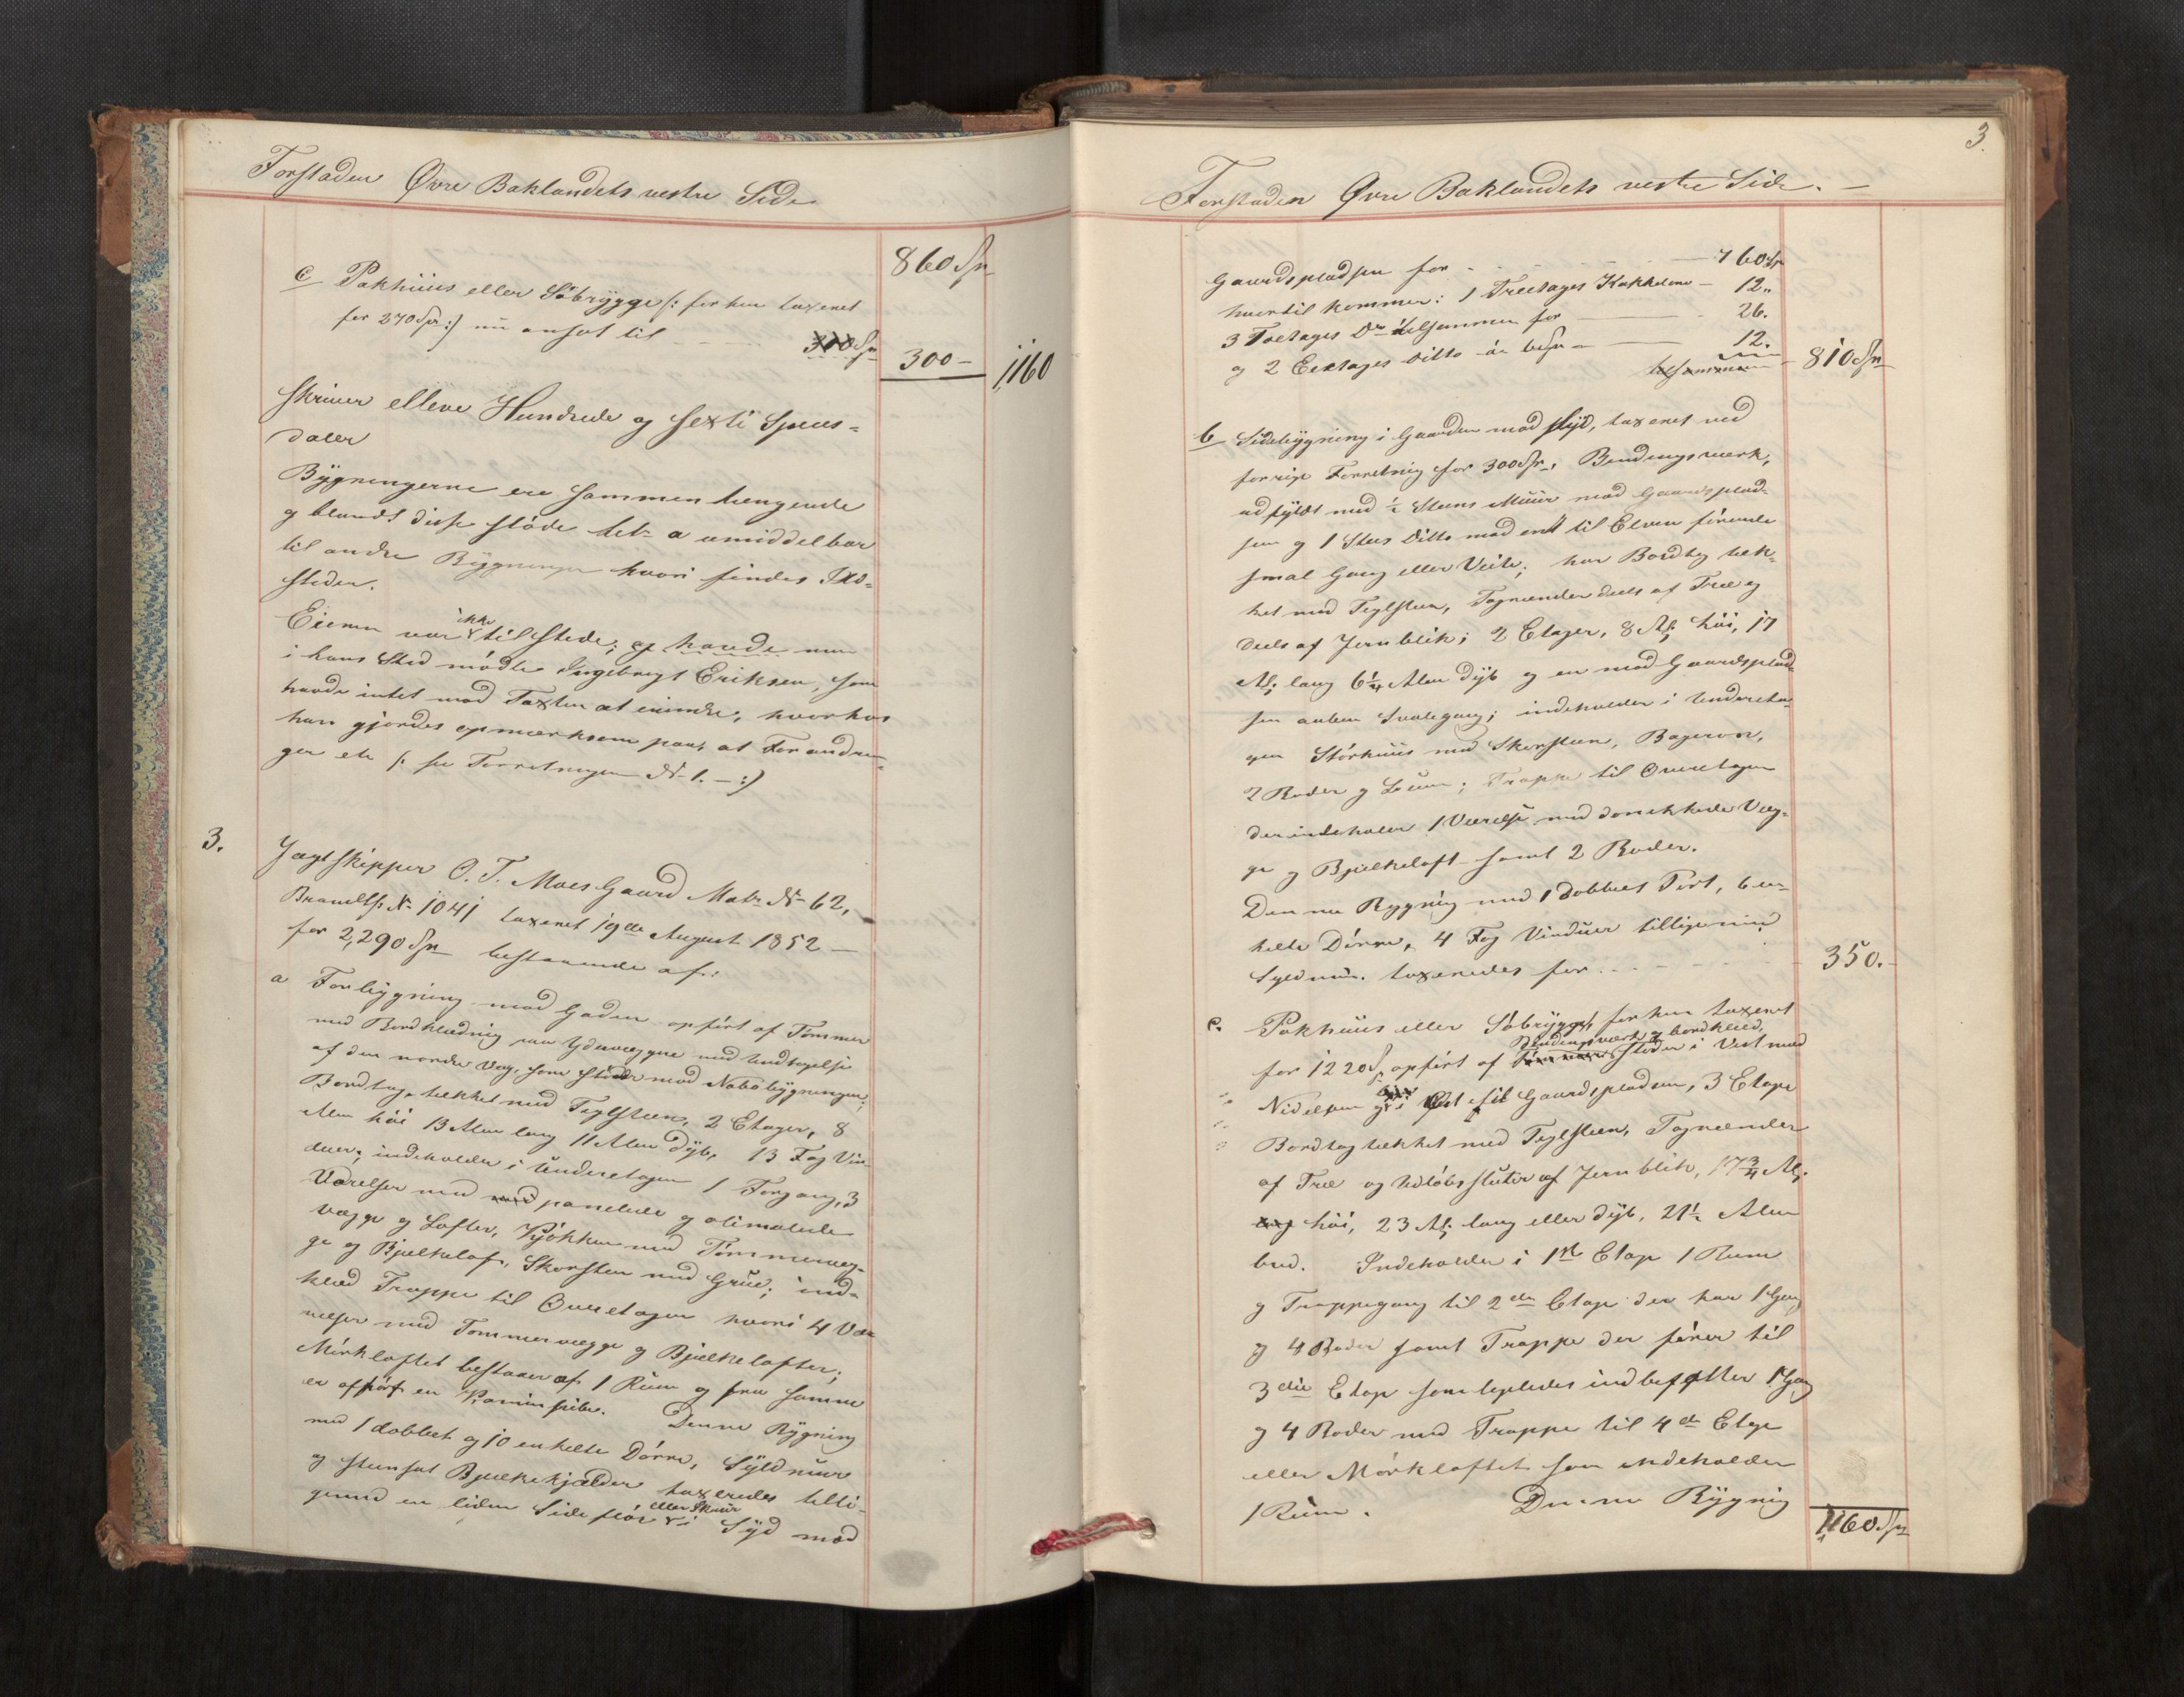 Forstaden Øvre Baklandets vestre Side
860 Spr
c Pakhüüs eller Söbrÿgge /: forhen taxeret
for 270 Spr :/ nü ansat til 300 Spr
300 –
1,160
Skriver elleve Hundrede og sexti Species-
daler
Bÿgningerne ere sammenhengende
og blandt disse støde litr a umiddelbar
til andre Bÿgninger hvori findes Ild-
steder.
Eieren var ikke tilstede; og havde men
i hans Sted mödte Ingebrigt Eriksen, som
havde intet mod Taxten at erindre, hvorhos
han gjordes opmærksom paa, at Forandrin-
ger etc /: see Forretningen No 1. – :/
3.
Jægtskipper O. T. Moes Gaard Matr No 62,
Brandts. No 1041 taxeret 19de August 1852 –
for 2,290 Spr bestaaende af:
a Forbÿgning mod Gaden opfört af Tömmer
med Bordklædning paa Ydervæggene med Undtagelse
af den nordre Væg, som stöder mod Nabobÿgningen;
Bordtag, tækket med Teglsteen, 2 Etager, 8
Alen höi 13 Alen lang 11 Alen dÿb, 13 Fag Vin-
duer; indeholder i Underetagen 1 Forgang, 3
Værelser med med panelede og oliemalede
Vægge og Lofter, Kjökken med Tömmervæg-
ge og Bjelkeloft, Skorsten med Grue; ind-
klæd Trappe til Overetagen hvori 4 Væ-
relser med Tømmervægge og Bjelkelofter;
Mörkloftet bestaaer af 1 Rüm og fra samme
er opfört en Kaminpibe. Denne Bÿgning
med 1 dobbelt og 10 enkelte Dörre, Sÿldmüür
og steensat Bjelkekjælder taxeredes tilli-
gemed en liden Sideflöi eller Skuür i Sÿd mod
3.
Forstaden Øvre Baklandets vestre Side. –
Gaardspladsen for 760 Spr
hvortil kommer: 1 Treetages Kakkelovn – 12 "
3 Toetages Do tilsammen for 26.
og 2 Eetages ditto 12.
tilsammen 810 Spr
b Sidebÿgning i Gaarden mod Sÿd, taxeret ved
forrige Forretnig for 300 Spr, Bindingsværk,
udfÿldt med ½ Steens Müür mod Gaardsplad-
sen og 1 Steens ditto mod en til Elven förende
smal Gang eller Veite; har Bordtag tæk-
ket med Teglsteen, Tagrender deels af Træ og
deels af Jernblik; 2 Etager, 8 Al; höi, 17
Al; lang 6¼ Alen dÿb og en mod Gaardsplad-
sen aaben Svalegang; indeholder i Undereta-
gen Störhüüs med Skorsteen, Bagerovn,
2 Boder og Trappe til Overetagen
der indeholder 1 Værelse med Væg-
ge og Bjelkeloft samt 2 Boder.
Denne Bygnig med 1 dobbelt Port, 6 en-
kelte Dörre, 4 Fag Vinduer tilligemed
Syldmür taxeredes for 350. –
c. Pakhüüs eller Söbrÿgge, forhen taxeret
for 1220 Spr opfört af Tömmer Bindingsværk og bordklæd, stöder i Vest mod
Nidelven og i Øst til Gaardspladsen, 3 Etage
Bordtag tækket med Teglsteen, Tagrender
af Træ og Udlöbsstüter af Jernblik, 17¾ Al;
höi, 23 Al; lang eller dÿb, 21½ Alen
bred. Indeholder i 1ste Etage 1 Rum
og Trappegang til 2den Etage der har 1 Gang
og 4 Boder samt Trappe der förer til
3die Etage som ligeledes indbefatter 1 Gang
og 4 Boder med Trappe til 4de Etage
eller Mörkloftet som indeholder
1 Rüm. Denne Bÿgnig
1160 Spr